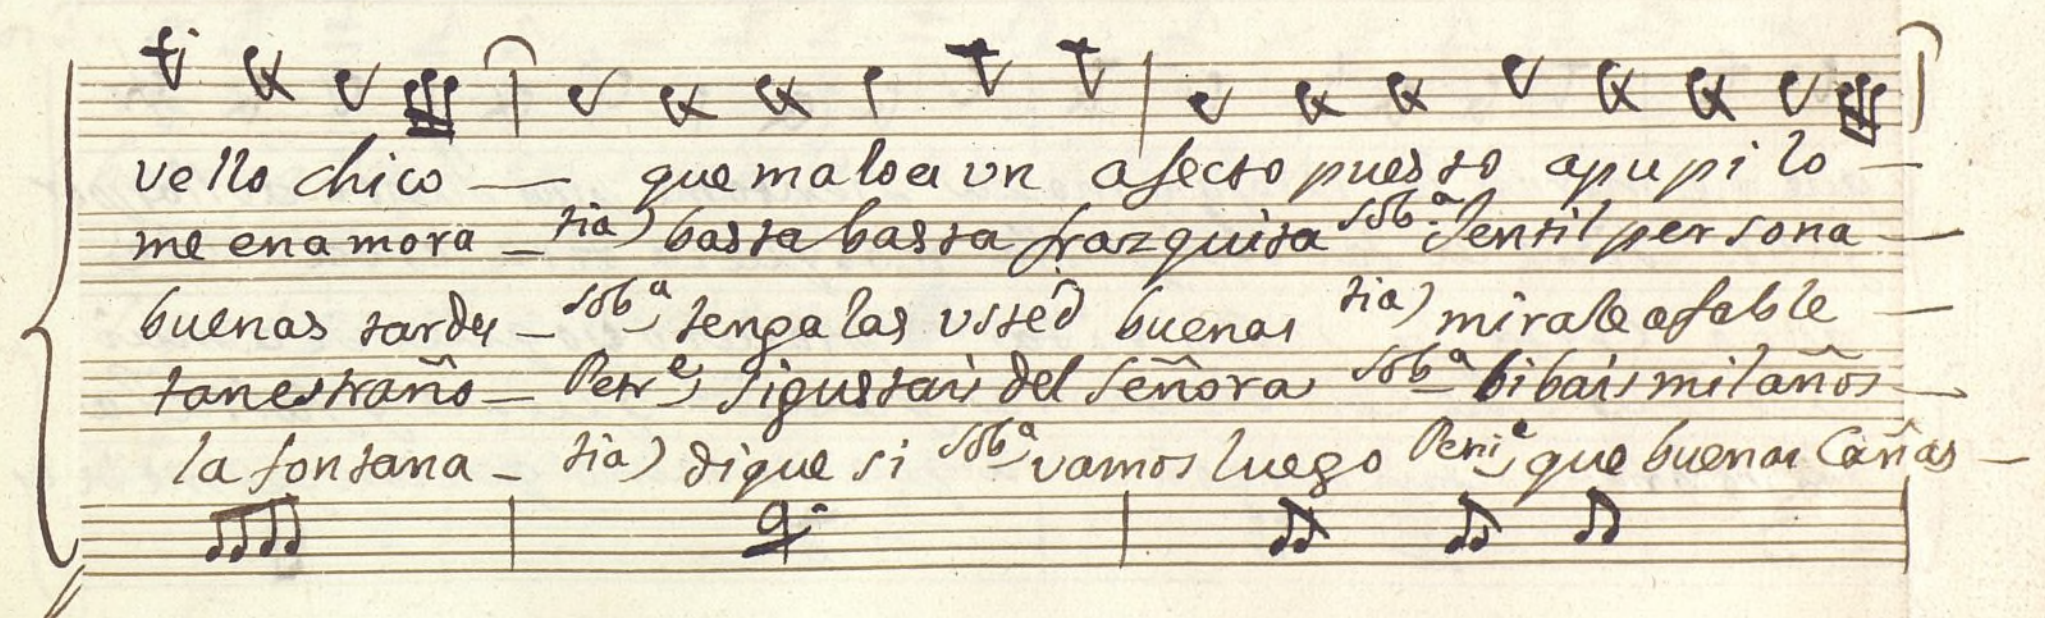 vello chico — que malo es un afecto puesto a pupilo —
me enamora – tia) basta basta frazquita sobª. Jentil persona —
buenas tardes – sobª tenga las usted buenas tia) mirale afable —
tan estraño – Petrᵉ, si gustais del señora sobª bibais mil años –
la fontana – tia) di que si sobª vamos luego Petriᵉ, que buenas Cañas –